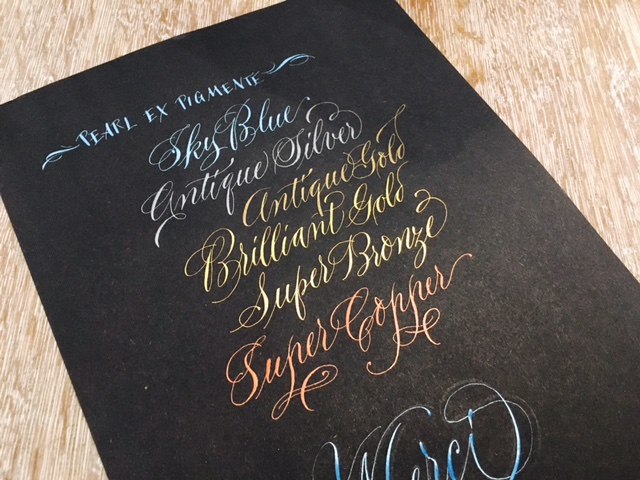 PEARL EX PIGMENTE
Sky Blue
Antique Silver
Antique Gold
Brilliant Gold
Super Bronze
Super Copper
Merci